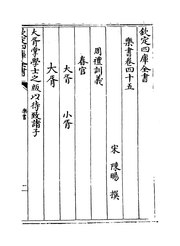 欽定四庫全書
樂書卷四十五
宋 陳暘 撰
周禮訓義
春官
大胥 小胥
大胥
大胥掌學士之版以待致諸子
欽定四庫全書
樂書